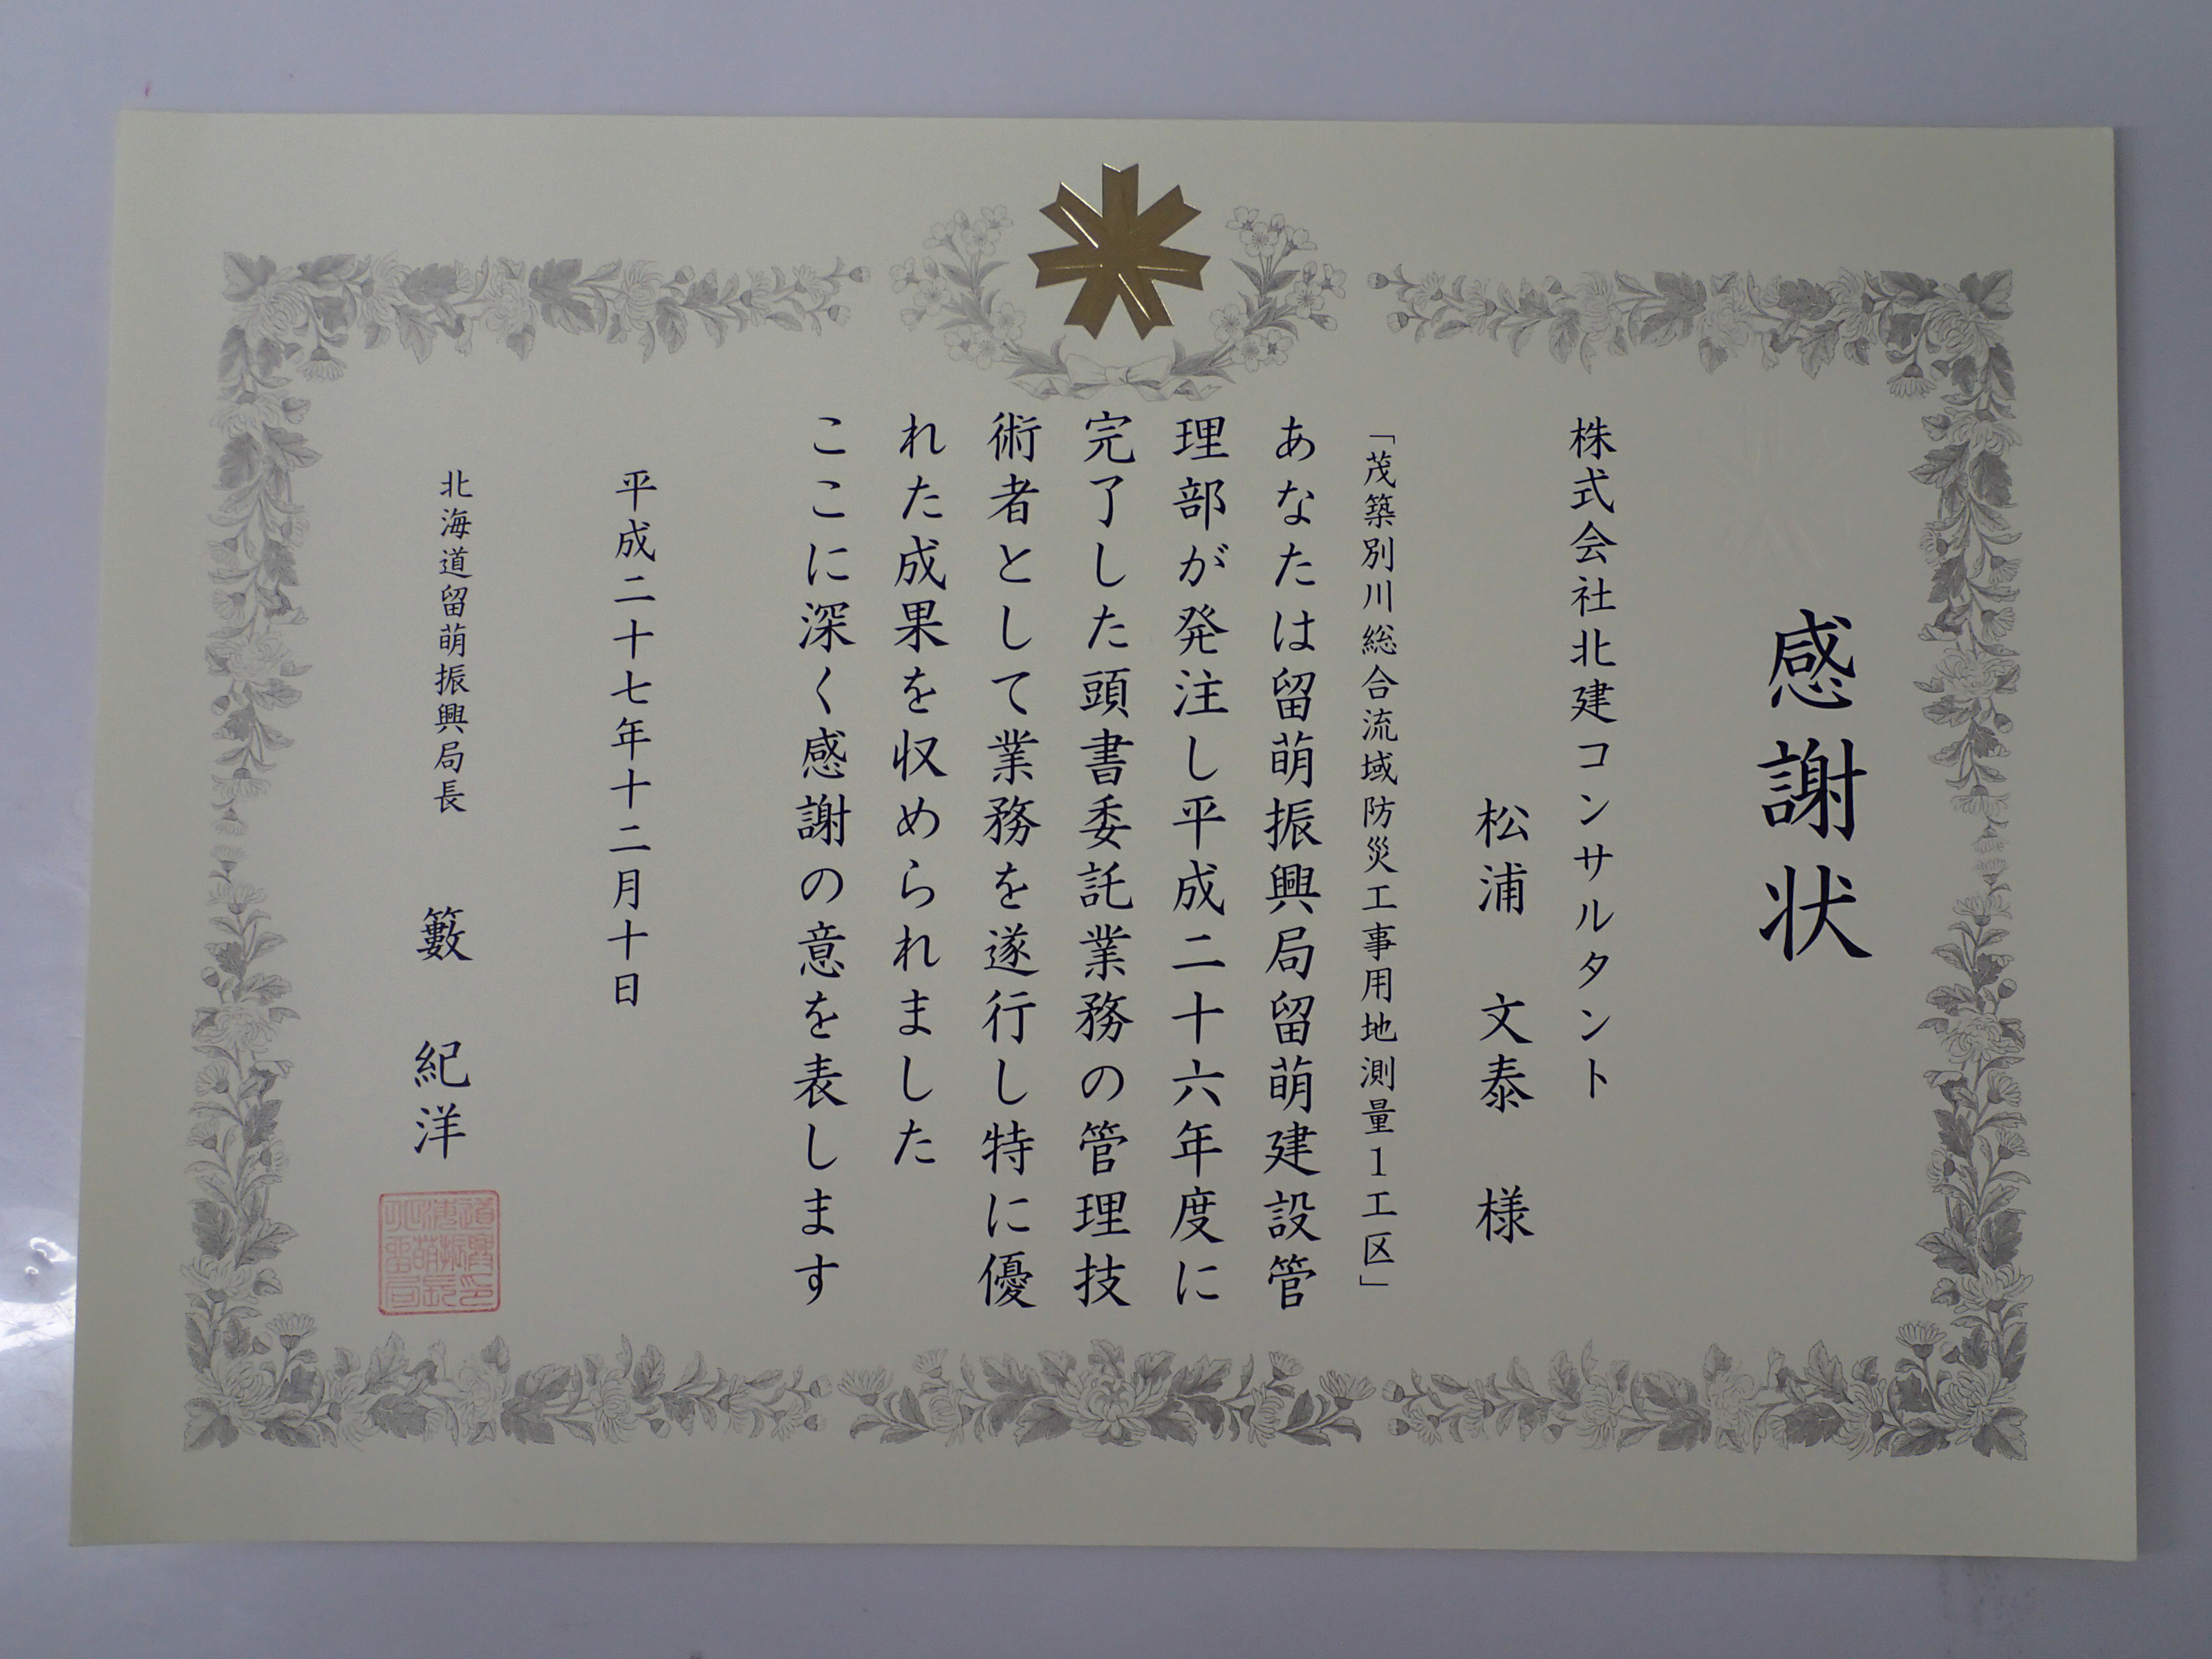 感謝状
株式会社北建コンサルタント
松浦 文泰 様
「茂築別川総合流域防災工事用地測量1工区」
あなたは留萌振興局留萌建設管
理部が発注し平成二十六年度に
完了した頭書委託業務の管理技
術者として業務を遂行し特に優
れた成果を収められました
ここに深く感謝の意を表します
平成二十七年十二月十日
北海道留萌振興局長 籔 紀洋